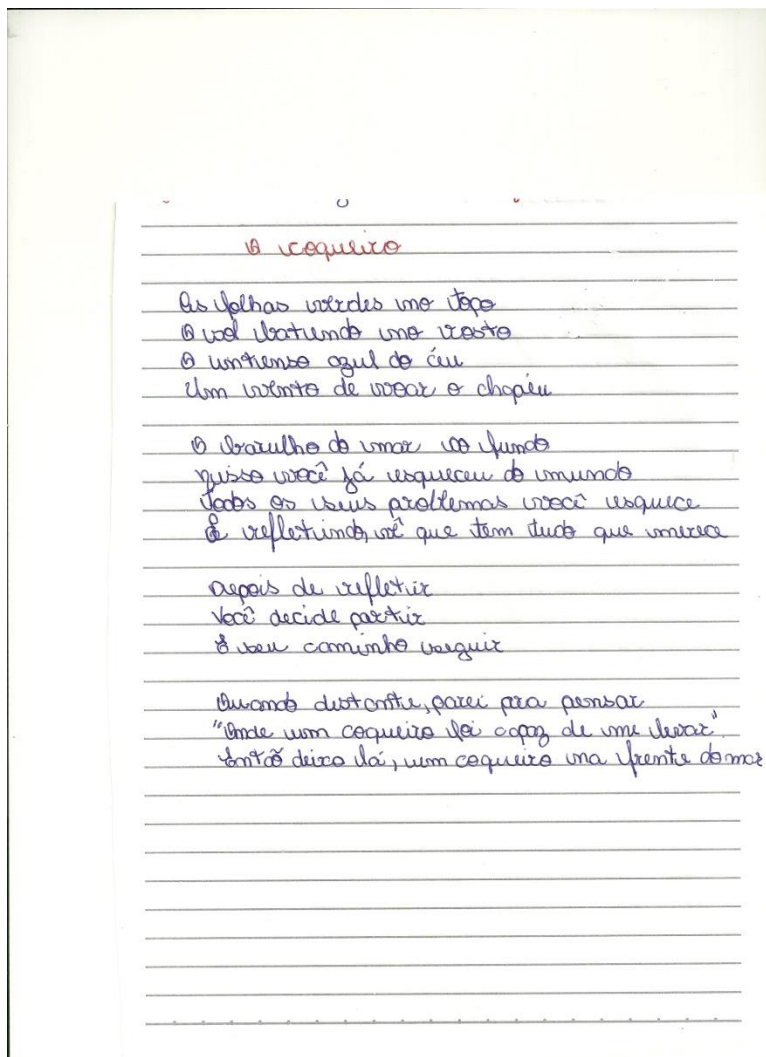 O coqueiro
As folhas verdes no topo
O sol batendo no rosto
O intenso azul do céu
Um vento de voar o chapéu
O barulho do mar ao fundo
Nisso você já esqueceu do mundo
Todos os seus problemas você esquece
E refletindo, vê que tem tudo que merece
Depois de refletir
Você decide partir
E seu caminho seguir
Quando distante, parei pra pensar
"Onde um coqueiro foi capaz de me levar"
Então deixo lá, um coqueiro na frente do mar